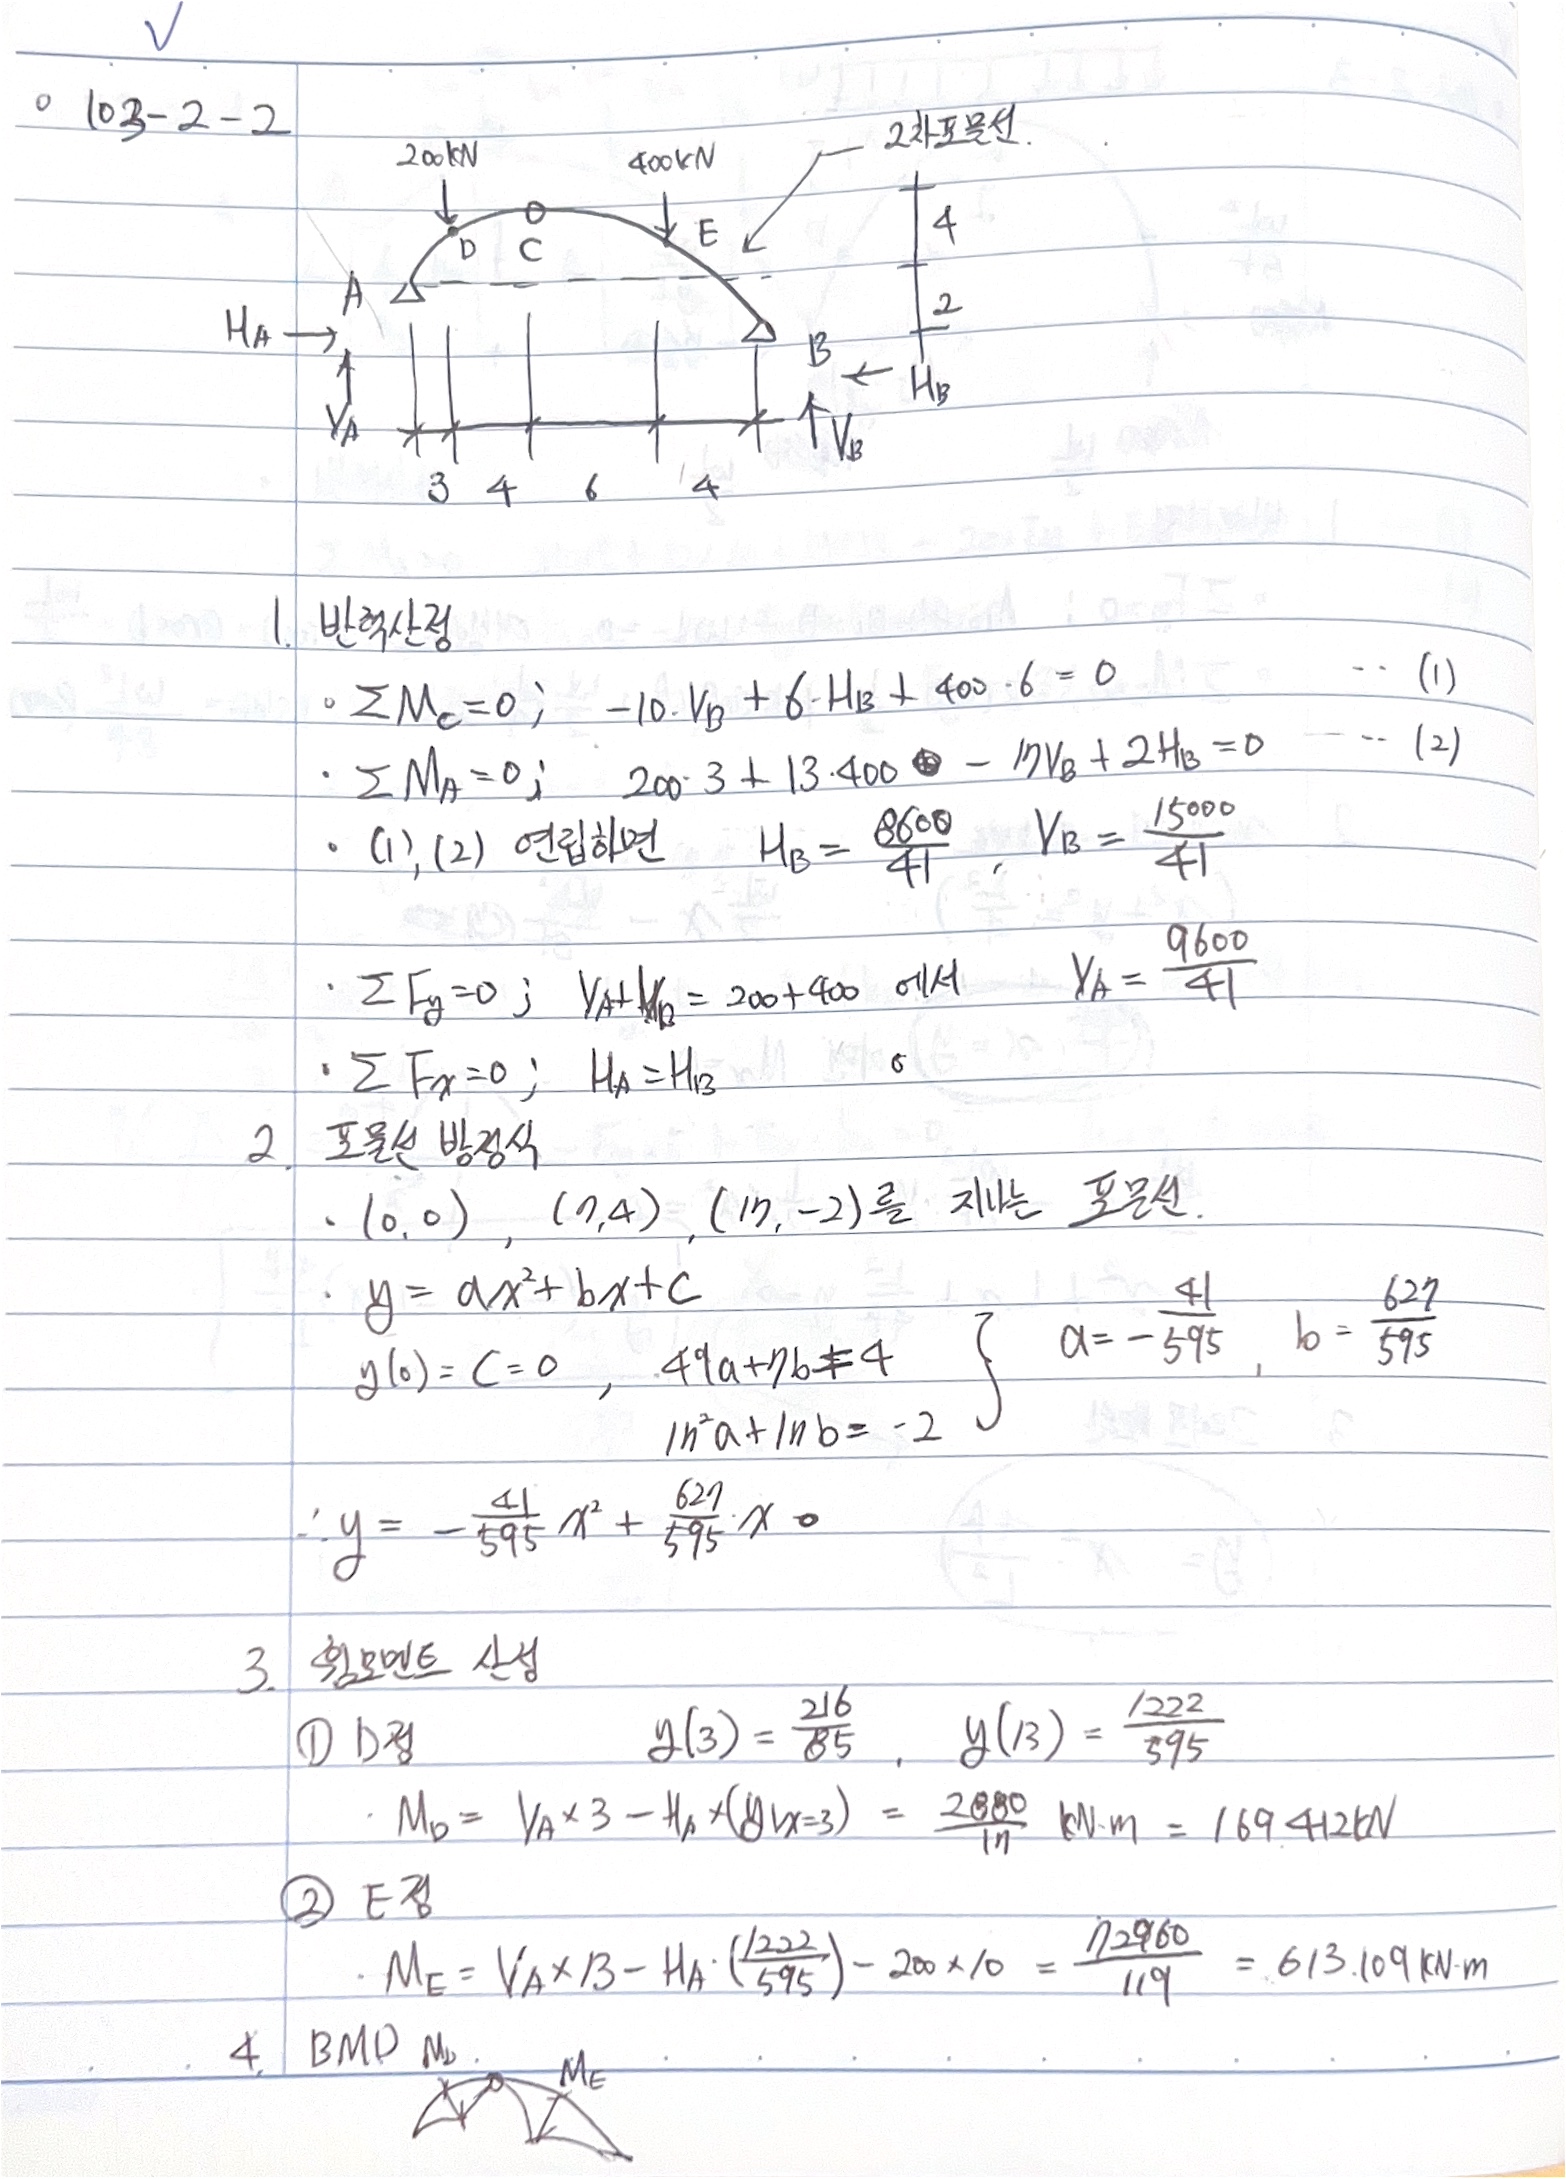 ○ 103-2-2
200kN
400kN
2차포물선.
D
C
E
A
B
4
2
H_A
V_A
H_B
V_B
3 4 6 4
1. 반력산정
· ΣM_C=0; -10·V_B + 6·H_B + 400·6 = 0 ·· (1)
· ΣM_A=0; 200·3 + 13·400 - 17V_B + 2H_B = 0 ···· (2)
· (1), (2) 연립하면 H_B = 8600/41, V_B = 15000/41
· ΣF_y=0; V_A+V_B = 200+400 에서 V_A = 9600/41
· ΣF_x=0; H_A=H_B
2. 포물선 방정식
· (0,0), (7,4), (17,-2)를 지나는 포물선.
· y = ax²+bx+c
y(0) = C = 0, 49a+7b=4
17²a+17b = -2 } a = -41/595, b = 627/595
∴ y = -41/595 x² + 627/595·x
3. 휨모멘트 산정
① D점 y(3) = 216/85, y(13) = 1222/595
· M_D = V_A×3 - H_A×(y|x=3) = 2880/17 kN·m = 169.412kN
② E점
· M_E = V_A×13 - H_A·(1222/595) - 200×10 = 72960/119 = 613.109kN·m
4. BMD
M_D
M_E